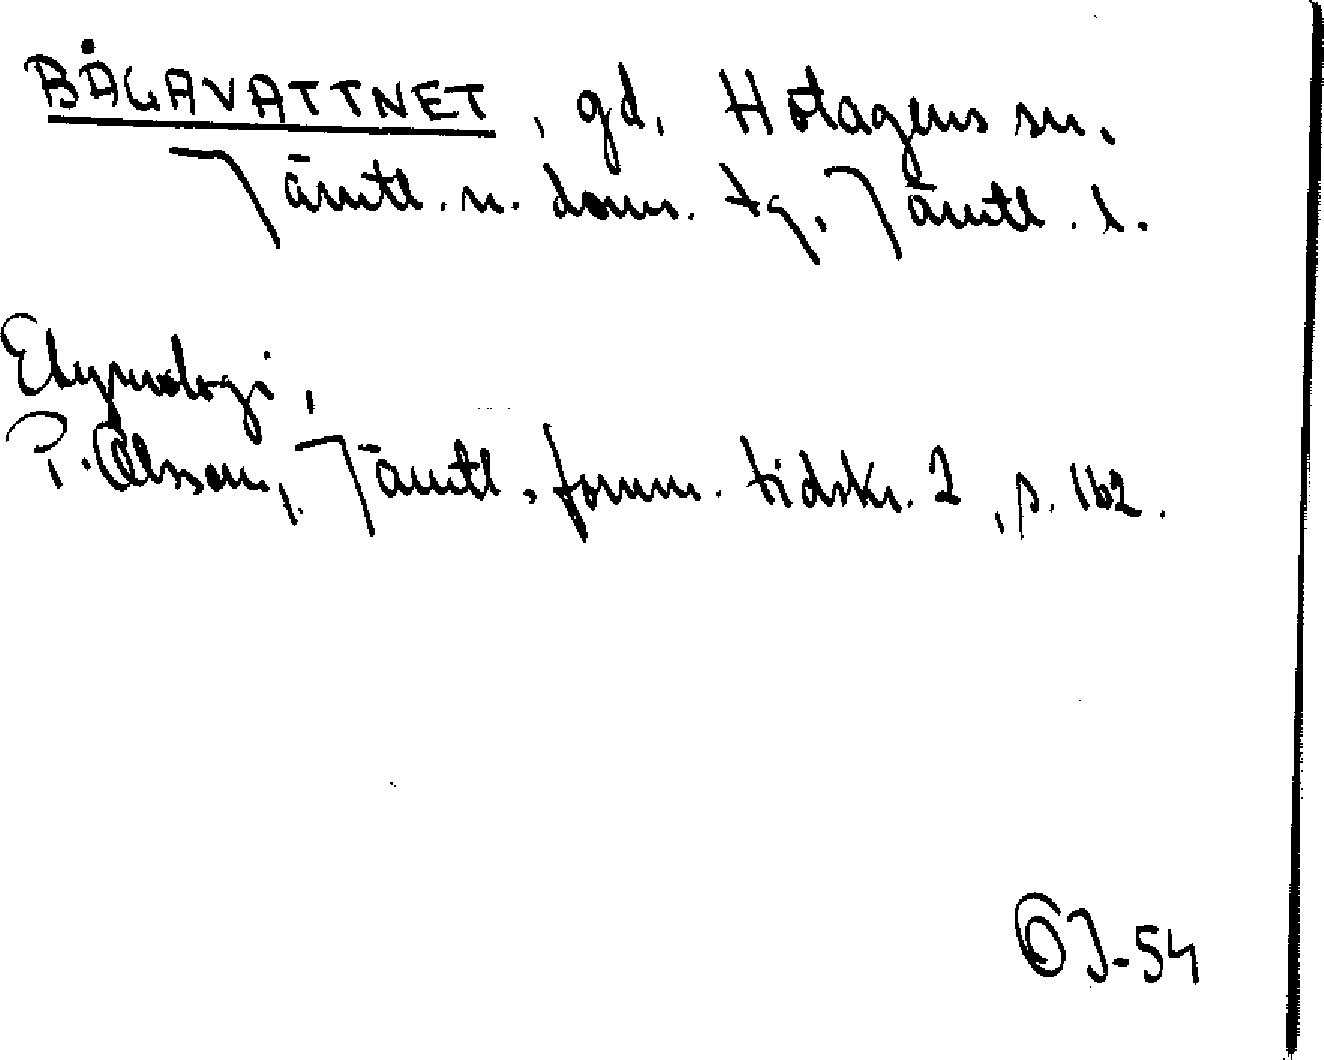 BÅGAVATTNET, gd, Hotagens sn.
Jämtl. n. doms. tg, Jämtl. l.
Etymologi,
P. Olsson, Jämtl. fornm. tidskr. 2, s. 162.
ÖJ-54